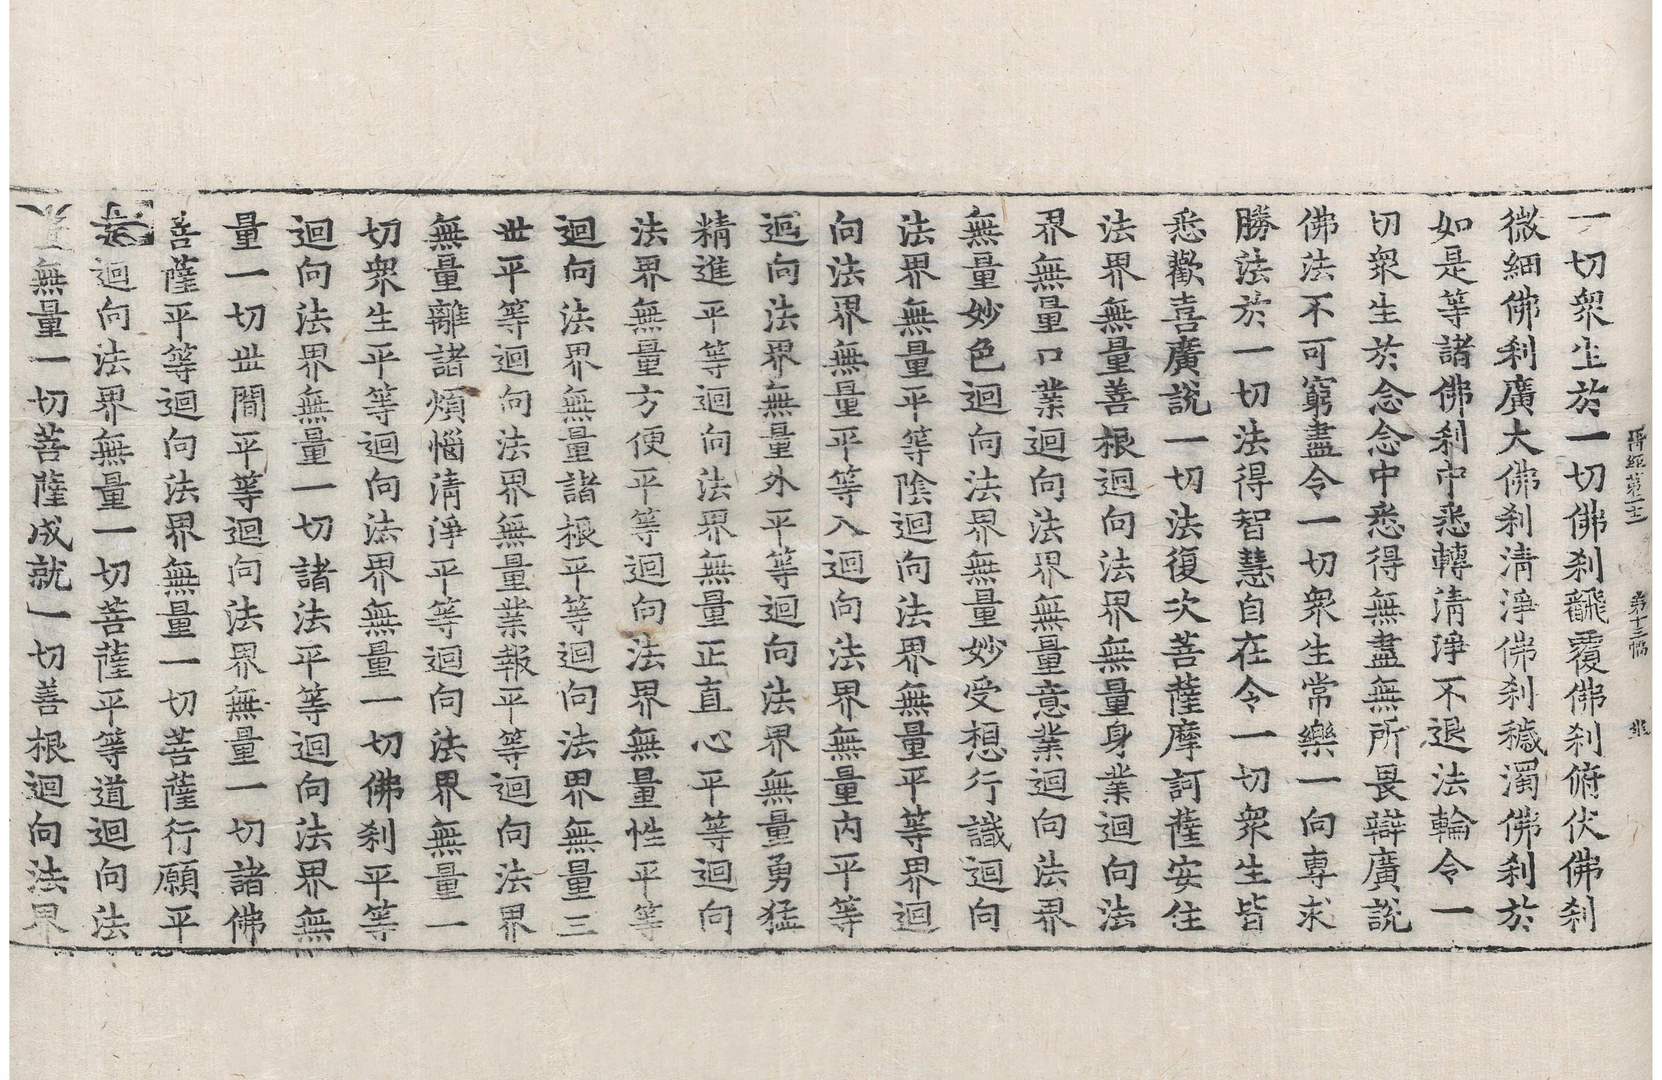 第十三幅
一切衆生於一切佛刹飜覆佛刹俯伏佛刹
微細佛刹廣大佛刹清淨佛刹穢濁佛刹於
如是等諸佛刹中悉轉清淨不退法輪令一
切衆生於念念中悉得無盡無所畏辯廣說
佛法不可窮盡令一切衆生常樂一向專求
勝法於一切法得智慧自在令一切衆生皆
悉歡喜廣說一切法復次菩薩摩訶薩安住
法界無量善根迴向法界無量身業迴向法
界無量口業迴向法界無量意業迴向法界
無量妙色迴向法界無量妙受想行識迴向
法界無量平等陰迴向法界無量平等界迴
向法界無量平等入迴向法界無量內平等
迴向法界無量外平等迴向法界無量勇猛
精進平等迴向法界無量正直心平等迴向
法界無量方便平等迴向法界無量性平等
迴向法界無量諸根平等迴向法界無量三
世平等迴向法界無量業報平等迴向法界
無量離諸煩惱清淨平等迴向法界無量一
切衆生平等迴向法界無量一切佛刹平等
迴向法界無量一切諸法平等迴向法界無
量一切世間平等迴向法界無量一切諸佛
菩薩平等迴向法界無量一切菩薩行願平
迴向法界無量一切菩薩平等道迴向法
無量一切菩薩成就一切善根迴向法界